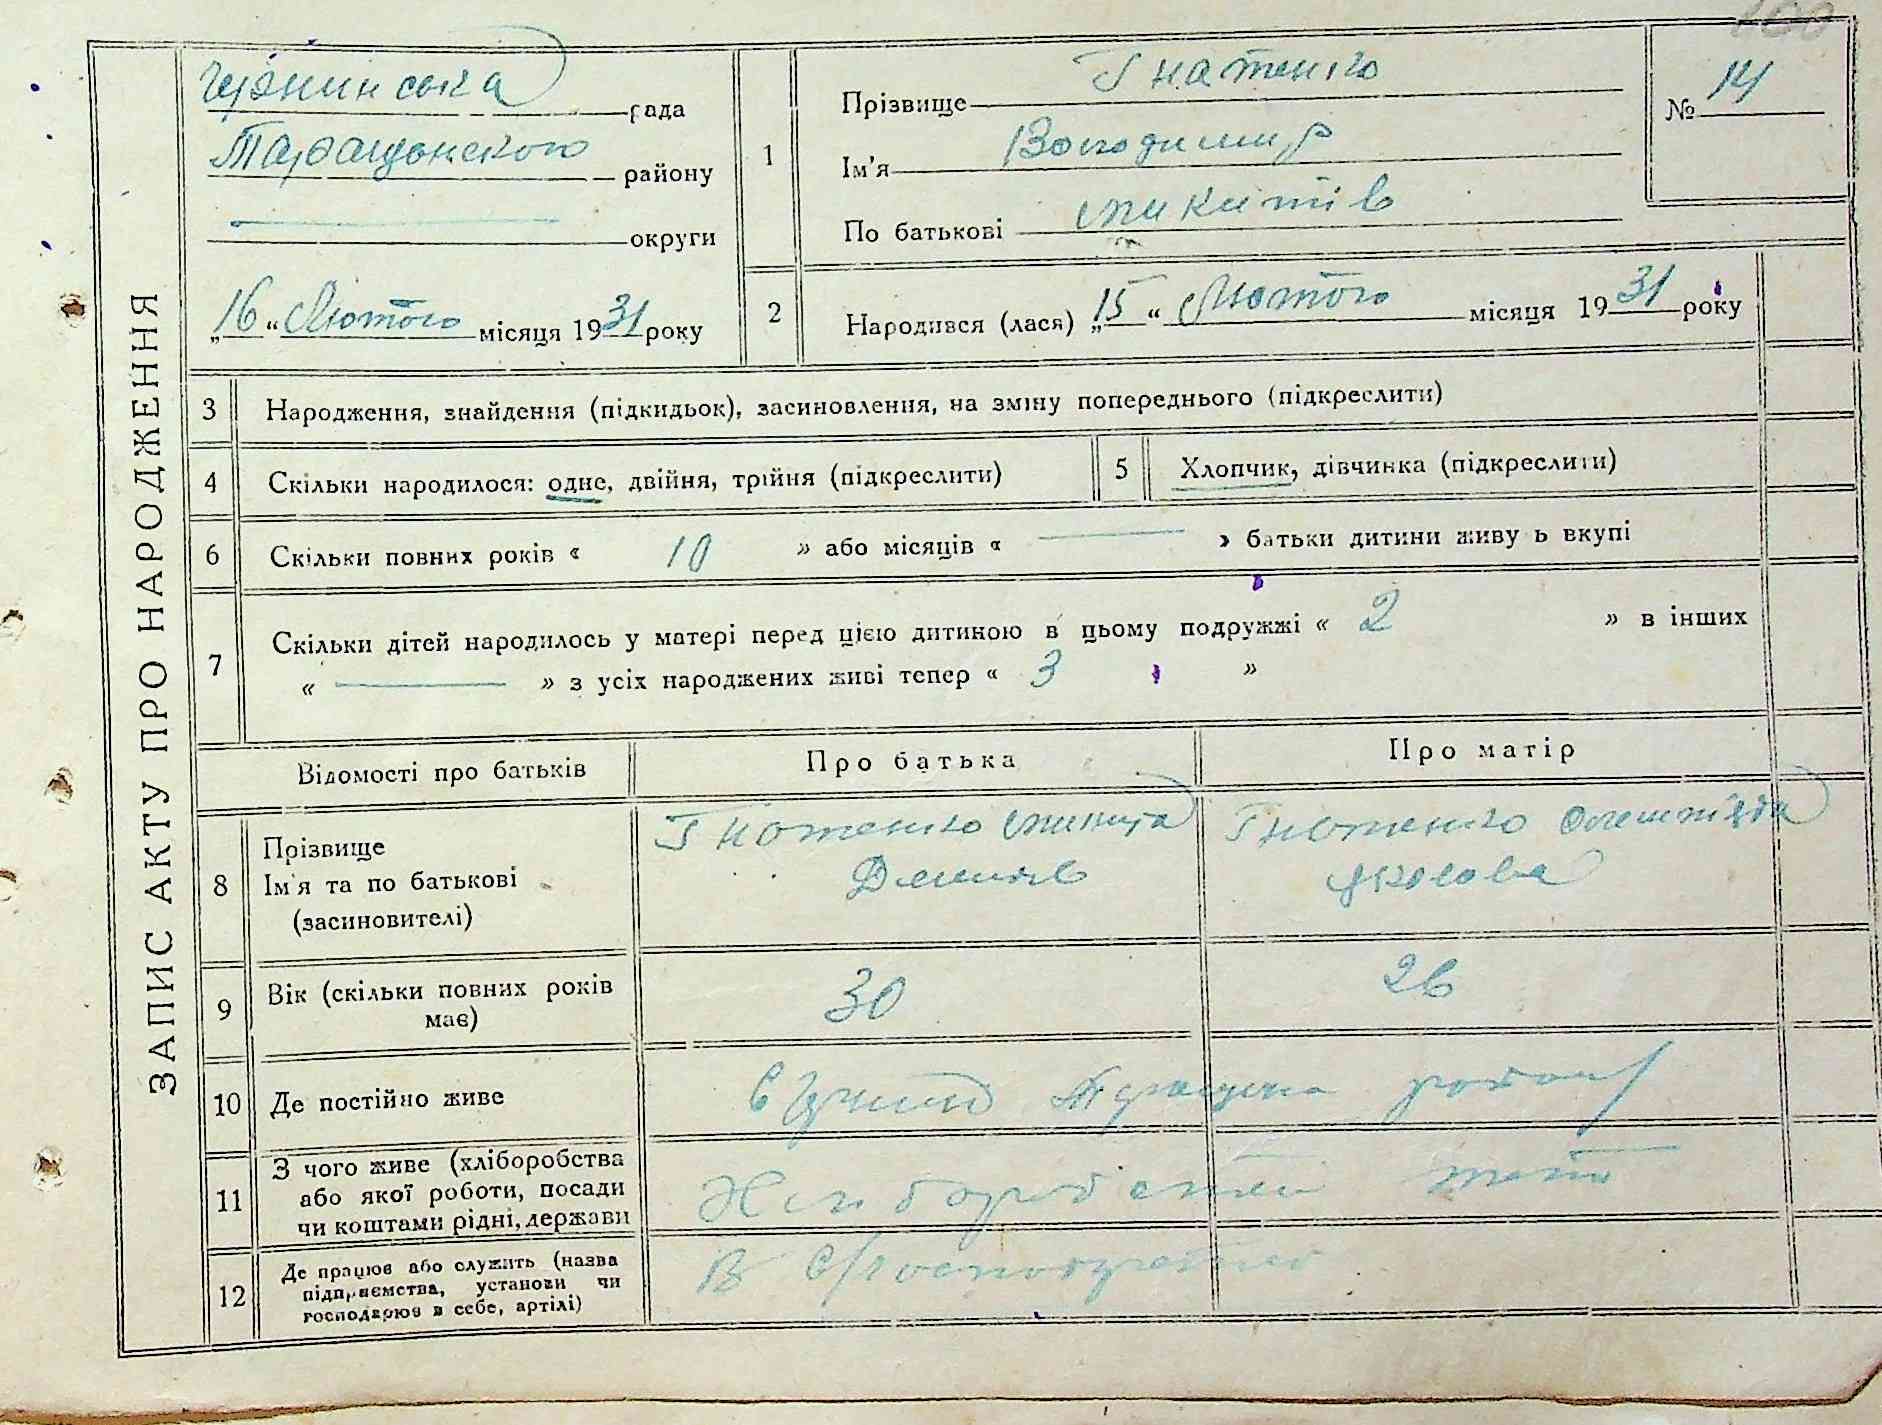 ЗАПИС АКТУ ПРО НАРОДЖЕННЯ
рада
Таращанського району
округи
„16“ Лютого місяця 1931 року
1
Прізвище Гнатенко
Ім'я Володимир
По батькові Микитів
№ 14
2
Народився (лася) „15“ Лютого місяця 1931 року
3 Народження, знайдення (підкидьок), засиновлення, на зміну попереднього (підкреслити)
4 Скільки народилося: одне, двійня, трійня (підкреслити)
5 Хлопчик, дівчинка (підкреслити)
6 Скільки повних років « 10 » або місяців « — » батьки дитини живу ь вкупі
7 Скільки дітей народилось у матері перед цією дитиною в цьому подружжі « 2 » в інших
« — » з усіх народжених живі тепер « 3 »
Відомості про батьків
Про батька
Про матір
8
Прізвище
Ім'я та по батькові
(засиновителі)
Гнатенко Микита
Гнатенко
9 Вік (скільки повних років
має)
30
26
10 Де постійно живе
11
З чого живе (хліборобства
або якої роботи, посади
чи коштами рідні, держави
12
Де працює або служить (назва
підприємства, установи чи
господарює в себе, артілі)